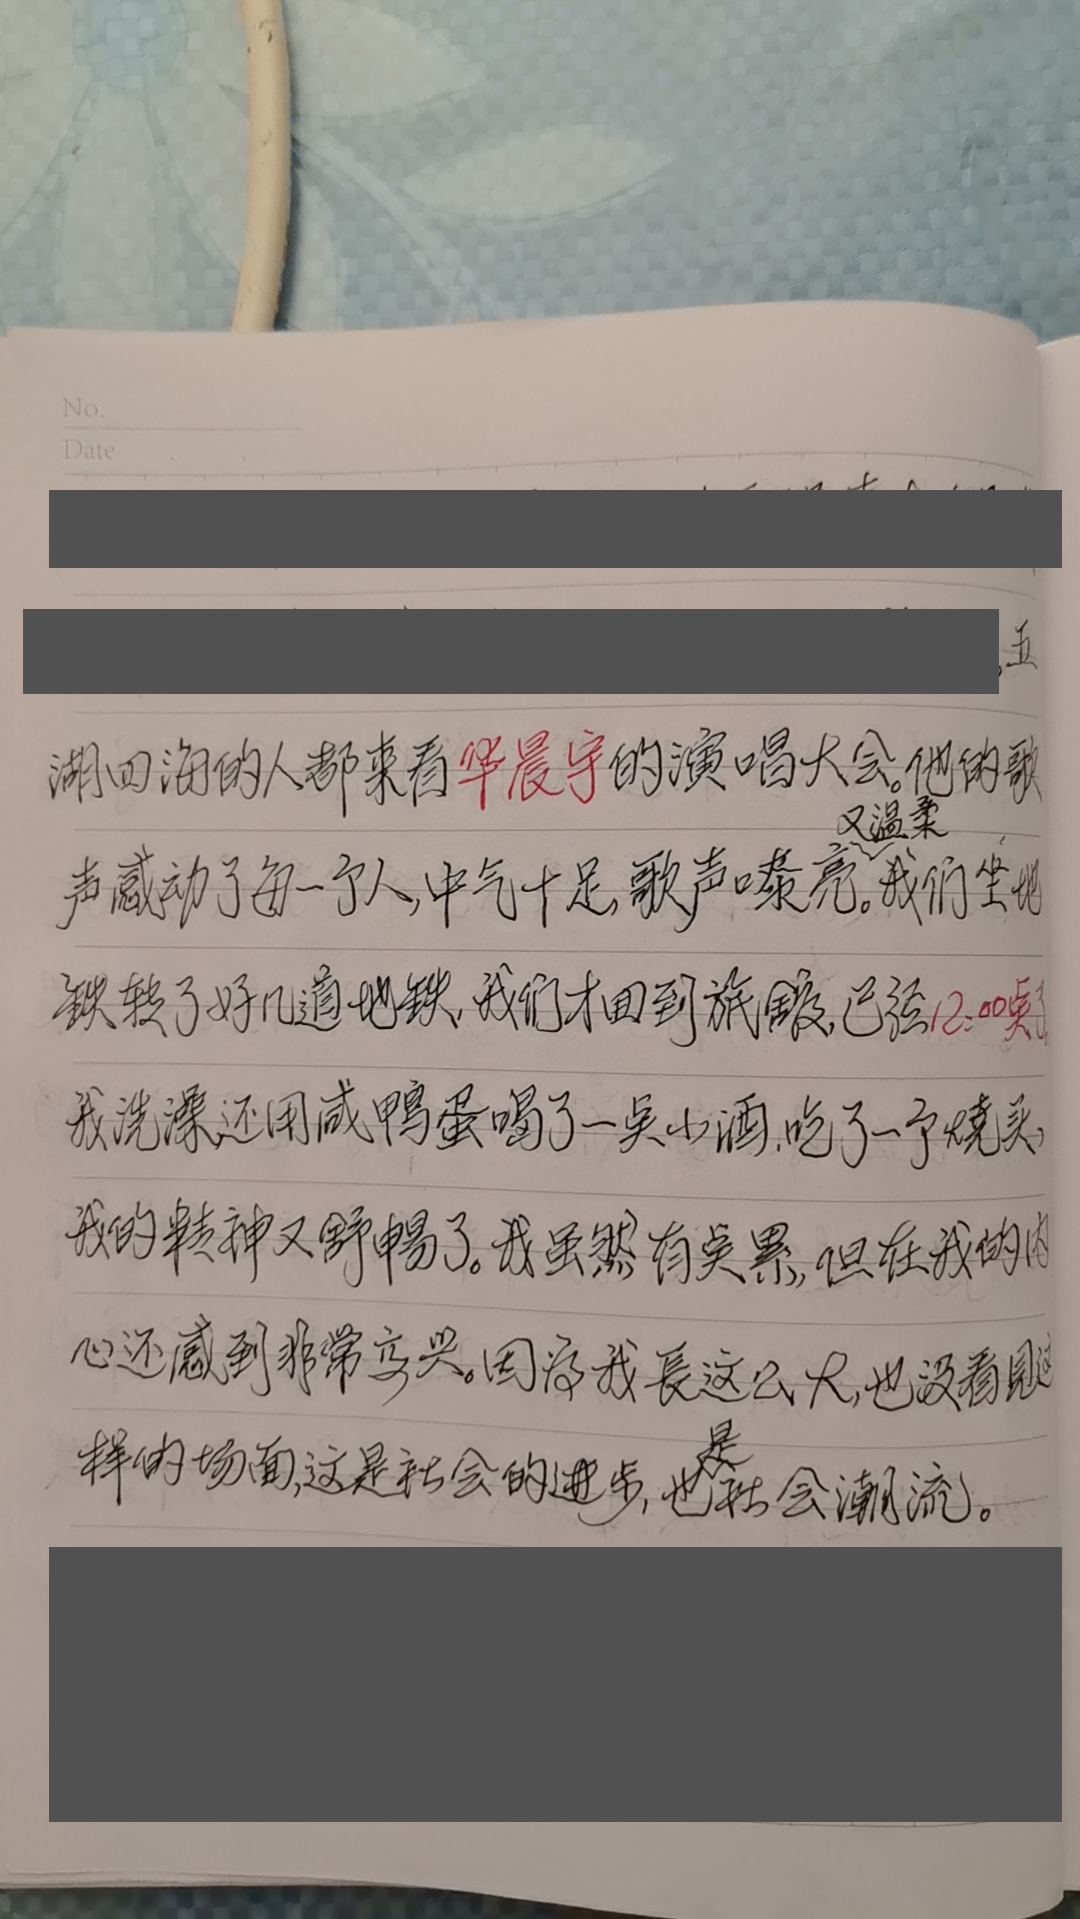 No.
Date
,五
湖四海的人都来看华晨宇的演唱大会。他的歌
又温柔
声感动了每一个人,中气十足,歌声嘹亮。我们坐地
铁转了好几道地铁,我们才回到旅馆,已经12:00点了,
我洗澡,还用咸鸭蛋喝了一点小酒,吃了一个烧买,
我的精神又舒畅了。我虽然有点累,但在我的内
心还感到非常高兴。因为我長这么大,也没看见这
是
样的场面,这是社会的进步,也社会潮流。